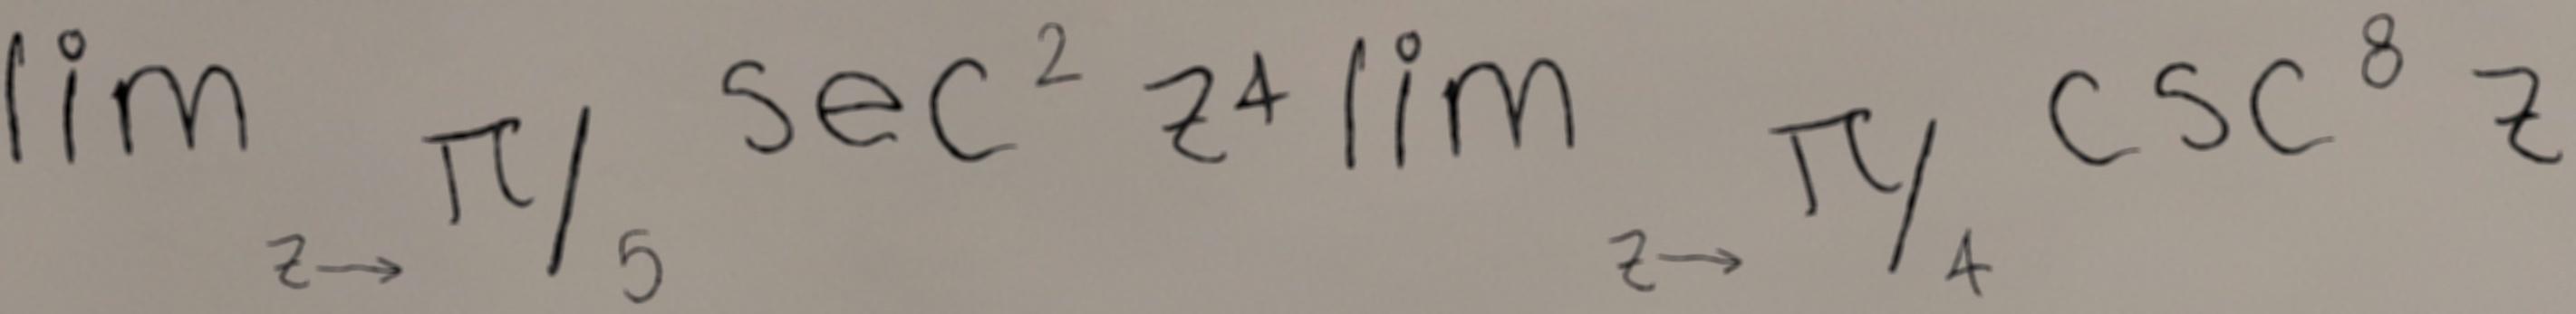 lim z→π/5 sec² z + lim z→π/4 csc⁸ z